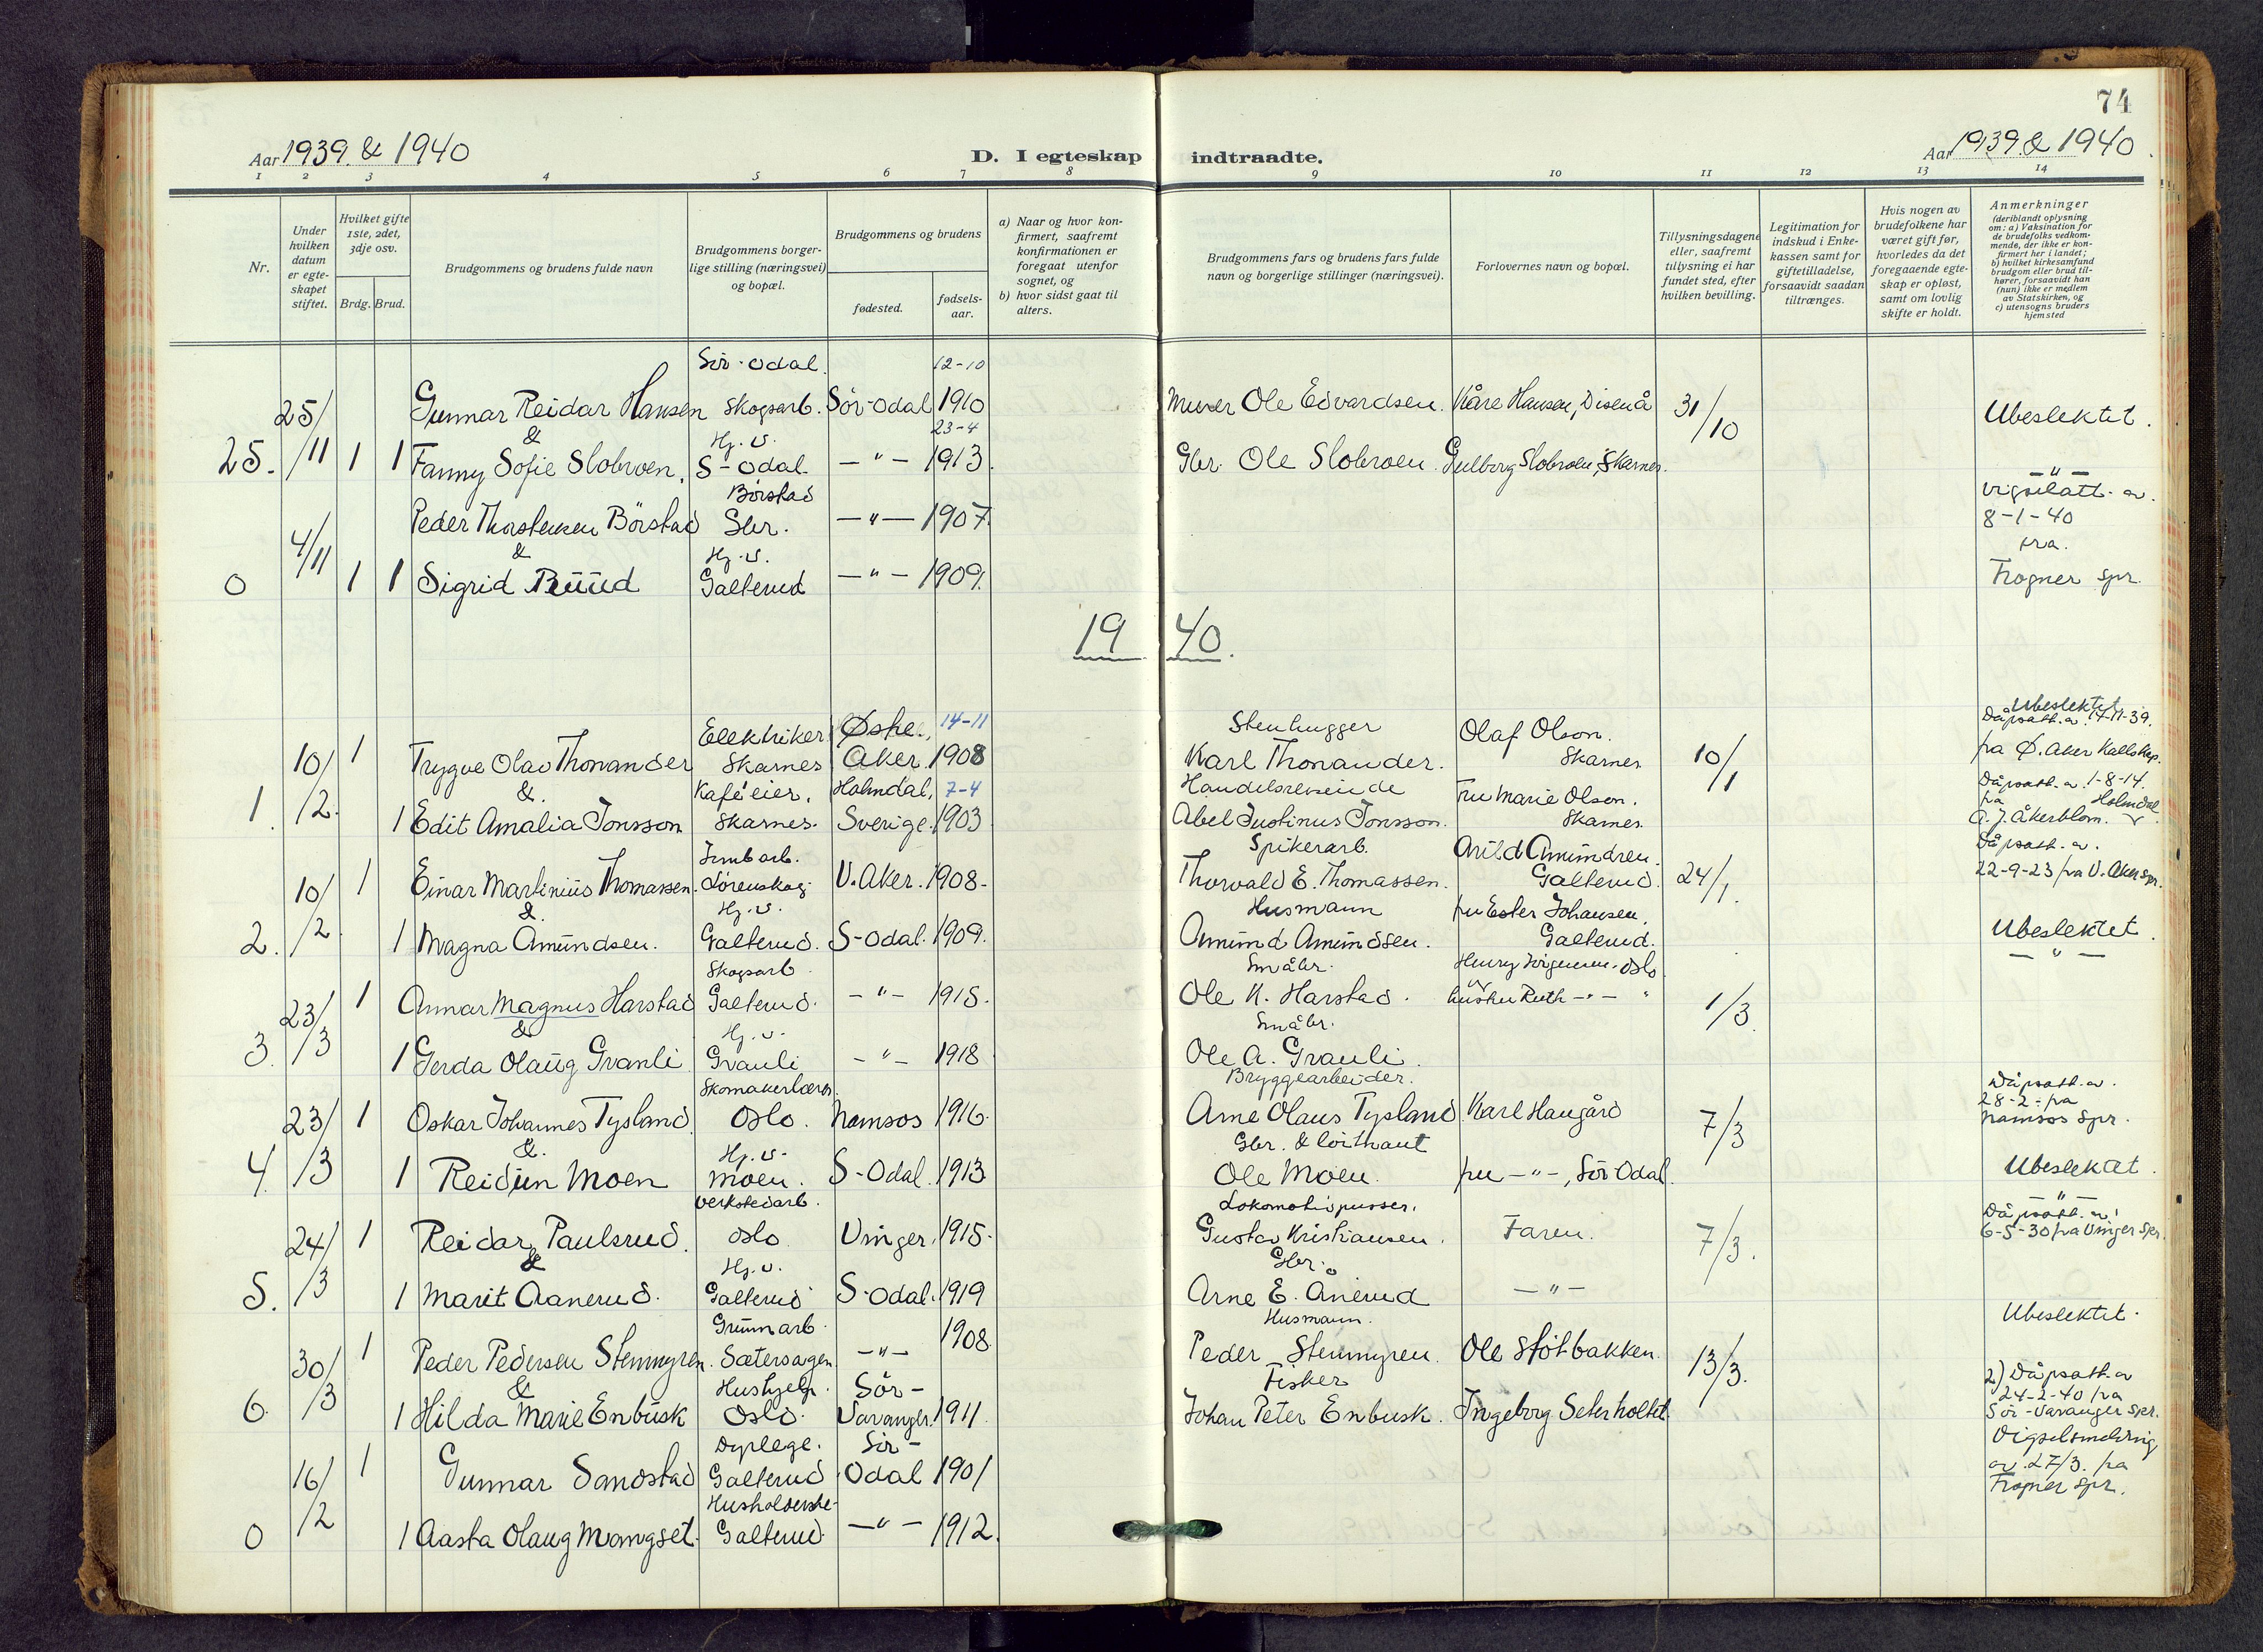 74
Aar 1939. & 1940
D. I egteskap indtraadte.
Aar 1939. & 1940.
1 2 3 4 5 6 7 8 9 10 11 12 13 14
Nr.
Under hvilken datum er egteskapet stiftet.
Hvilket gifte 1ste, 2det, 3dje osv.
Brdg. Brud.
Brudgommens og brudens fulde navn
Brudgommens borgerlige stilling (næringsvei) og bopæl.
Brudgommens og brudens
fødested.
fødselsaar.
a) Naar og hvor konfirmert, saafremt konfirmationen er foregaat utenfor sognet, og
b) hvor sidst gaat til alters.
Brudgommens fars og brudens fars fulde navn og borgerlige stillinger (næringsvei).
Forlovernes navn og bopæl.
Tillysningsdagene eller, saafremt tillysning ei har fundet sted, efter hvilken bevilling.
Legitimation for indskud i Enkekassen samt for giftetilladelse, forsaavidt saadan tiltrænges.
Hvis nogen av brudefolkene har været gift før, hvorledes da det foregaaende egteskap er opløst, samt om lovlig skifte er holdt.
Anmerkninger
(deriblandt oplysning om: a) Vaksination for de brudefolks vedkommende, der ikke er konfirmert her i landet;
b) hvilket kirkesamfund brudgom eller brud tilhører, forsaavidt han (hun) ikke er medlem av Statskirken, og
c) utensogns bruders hjemsted
Sør-Odal. 12-10
25/11 Gunnar Reidar Hansen Skogsarb. Sör-Odal 1910 Murer Ole Edvardsen. Kåre Hansen, Disenå 31/10 Ubeslektet.
& Hj. v. 23-4
25. 1 1 Fanny Sofie Slobroen. S-Odal. -"- 1913. Gbr. Ole Slobroen. Gulborg Slobroen, Skarnes.
Börstad -"-
4/11 Peder Thorstensen Börstad Gbr. -"- 1907. Vigselatt. av. 8-1-40
& Hj. v. fra.
0 1 1 Sigrid Ruud Galterud -"- 1909. Frogner spr.
1940.
Elektriker Østre 14-11 Stenhugger Olaf Olson. Ubeslektet
10/2. 1 Trygve Olav Thonander Skarnes Aker. 1908 Karl Thonander. Skarnes 10/1 Dåpsatt. av. 14-11-39. fra Ø. Aker
& Kaféeier. Holmdal, 7-4 Handelsreisende Fru Marie Olson. Dåpsatt. av. 1-8-14. fra Holmdal
1. 1 Edit Amalia Jonsson Skarnes. Sverige. 1903 Abel Justinus Jonsson. Skarnes. A. J. Åkerblom.
Spikerarb. Arild Amundsen. Dåpsatt. av.
10/2. 1 Einar Martinius Thomassen. Lørenskog. V. Aker. 1908. Thorvald E. Thomassen. Galterud. 24/1. 22-9-23 fra V. Aker spr.
& Hj. v. Husmann fru Ester Johansen.
2. 1 Magna Amundsen. Galterud. S-Odal. 1909. Amund Amundsen. Galterud. Ubeslektet.
Skogsarb. Småbr. Henry Jörgensen. Oslo -"-
23/3 1 Annar Magnus Harstad Galterud. -"- 1915. Ole K. Harstad. hustru Ruth -"- 1/3.
& Hj. v. Småbr.
3. 1 Gerda Olaug Granli Granli -"- 1918 Ole A. Granli.
Bryggearbeider. Dåpsatt. av.
23/3 1 Oskar Johannes Tysland Oslo. Namsos 1916. Arne Olaus Tysland. Karl Haugård 7/3 28-2- fra Namsos spr.
& Hj. v.
4. 1 Reidun Moen Moen. S-Odal. 1913 Ole Moen. fru -"-, Sör Odal.
Verkstedarb. Lokomotivpusser.
24/3 1 Reidar Paulsrud. Oslo Vinger. 1915. Gustav Kristiansen. Faren. 7/3. Dåpsatt. av. 6-5-30 fra Vinger spr.
& Hj. v. Gbr.
5. 1 Marit Aanerud. Galterud S-Odal. 1919 Arne E. Ånerud -"-
Husmann. Ubeslektet.
30/3 1 Peder Pedersen Stenmyren. Sætersagen. -"- 1908 Peder Stenmyren. Ole Stötbakken. 13/3.
& Hushjelp. Sör- Fisker 2) Dåpsatt. av
6. 1 Hilda Marie Enbusk Oslo. Varanger. 1911. Johan Peter Enbusk. Ingeborg Seterholtet. 24-2-40 fra Sör-Varanger spr.
Dyrlege. Sör-
16/2 1 Gunnar Sandstad Galterud Odal 1901 av. 27/3. fra
Frogner spr.
0 1 Aasta Olaug Mangset. Galterud -"- 1912.